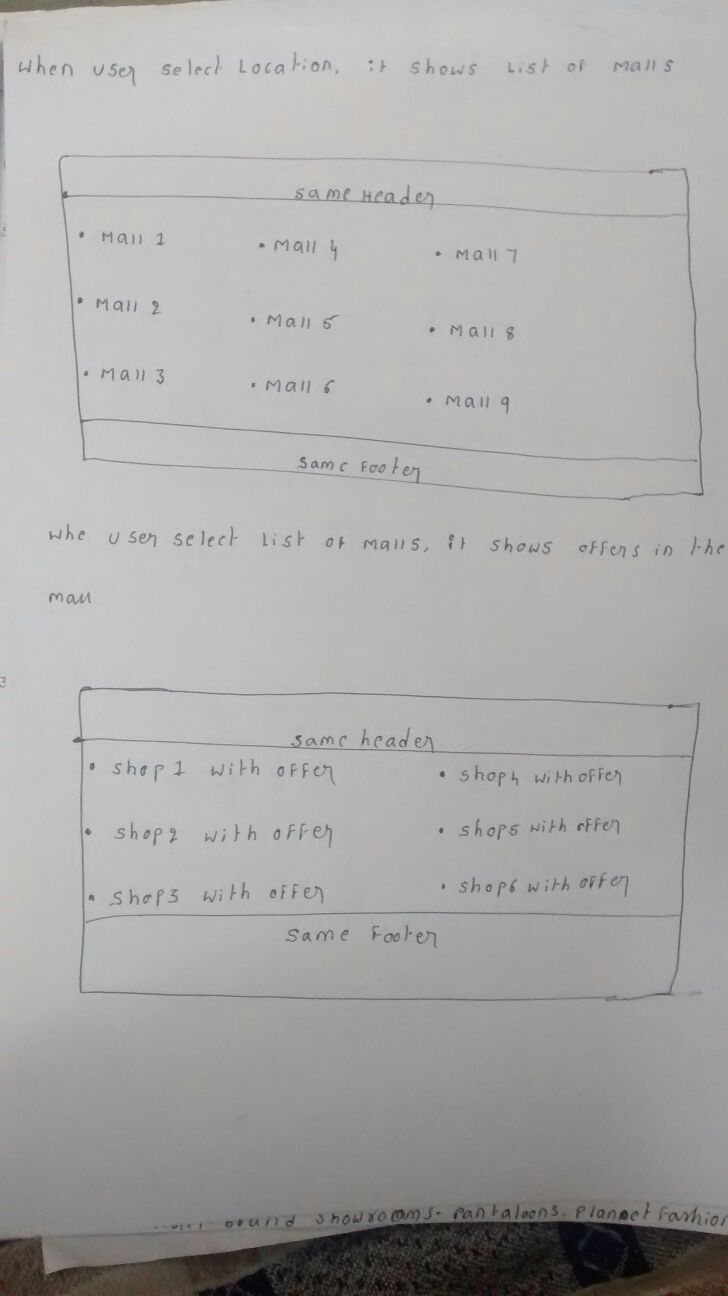 When user select Location, it shows List of Malls
Same Header
• Mall 1 • Mall 4 • Mall 7
• Mall 2 • Mall 5 • Mall 8
• Mall 3 • Mall 6 • Mall 9
Same Footer
Whe user select List of Malls, it shows offers in the
mall
Same header
• Shop 1 with offer • Shop 4 with offer
• Shop 2 with offer • Shop 5 with offer
• Shop 3 with offer • Shop 6 with offer
Same Footer
showrooms. Pantaloons. Plannet Fashion